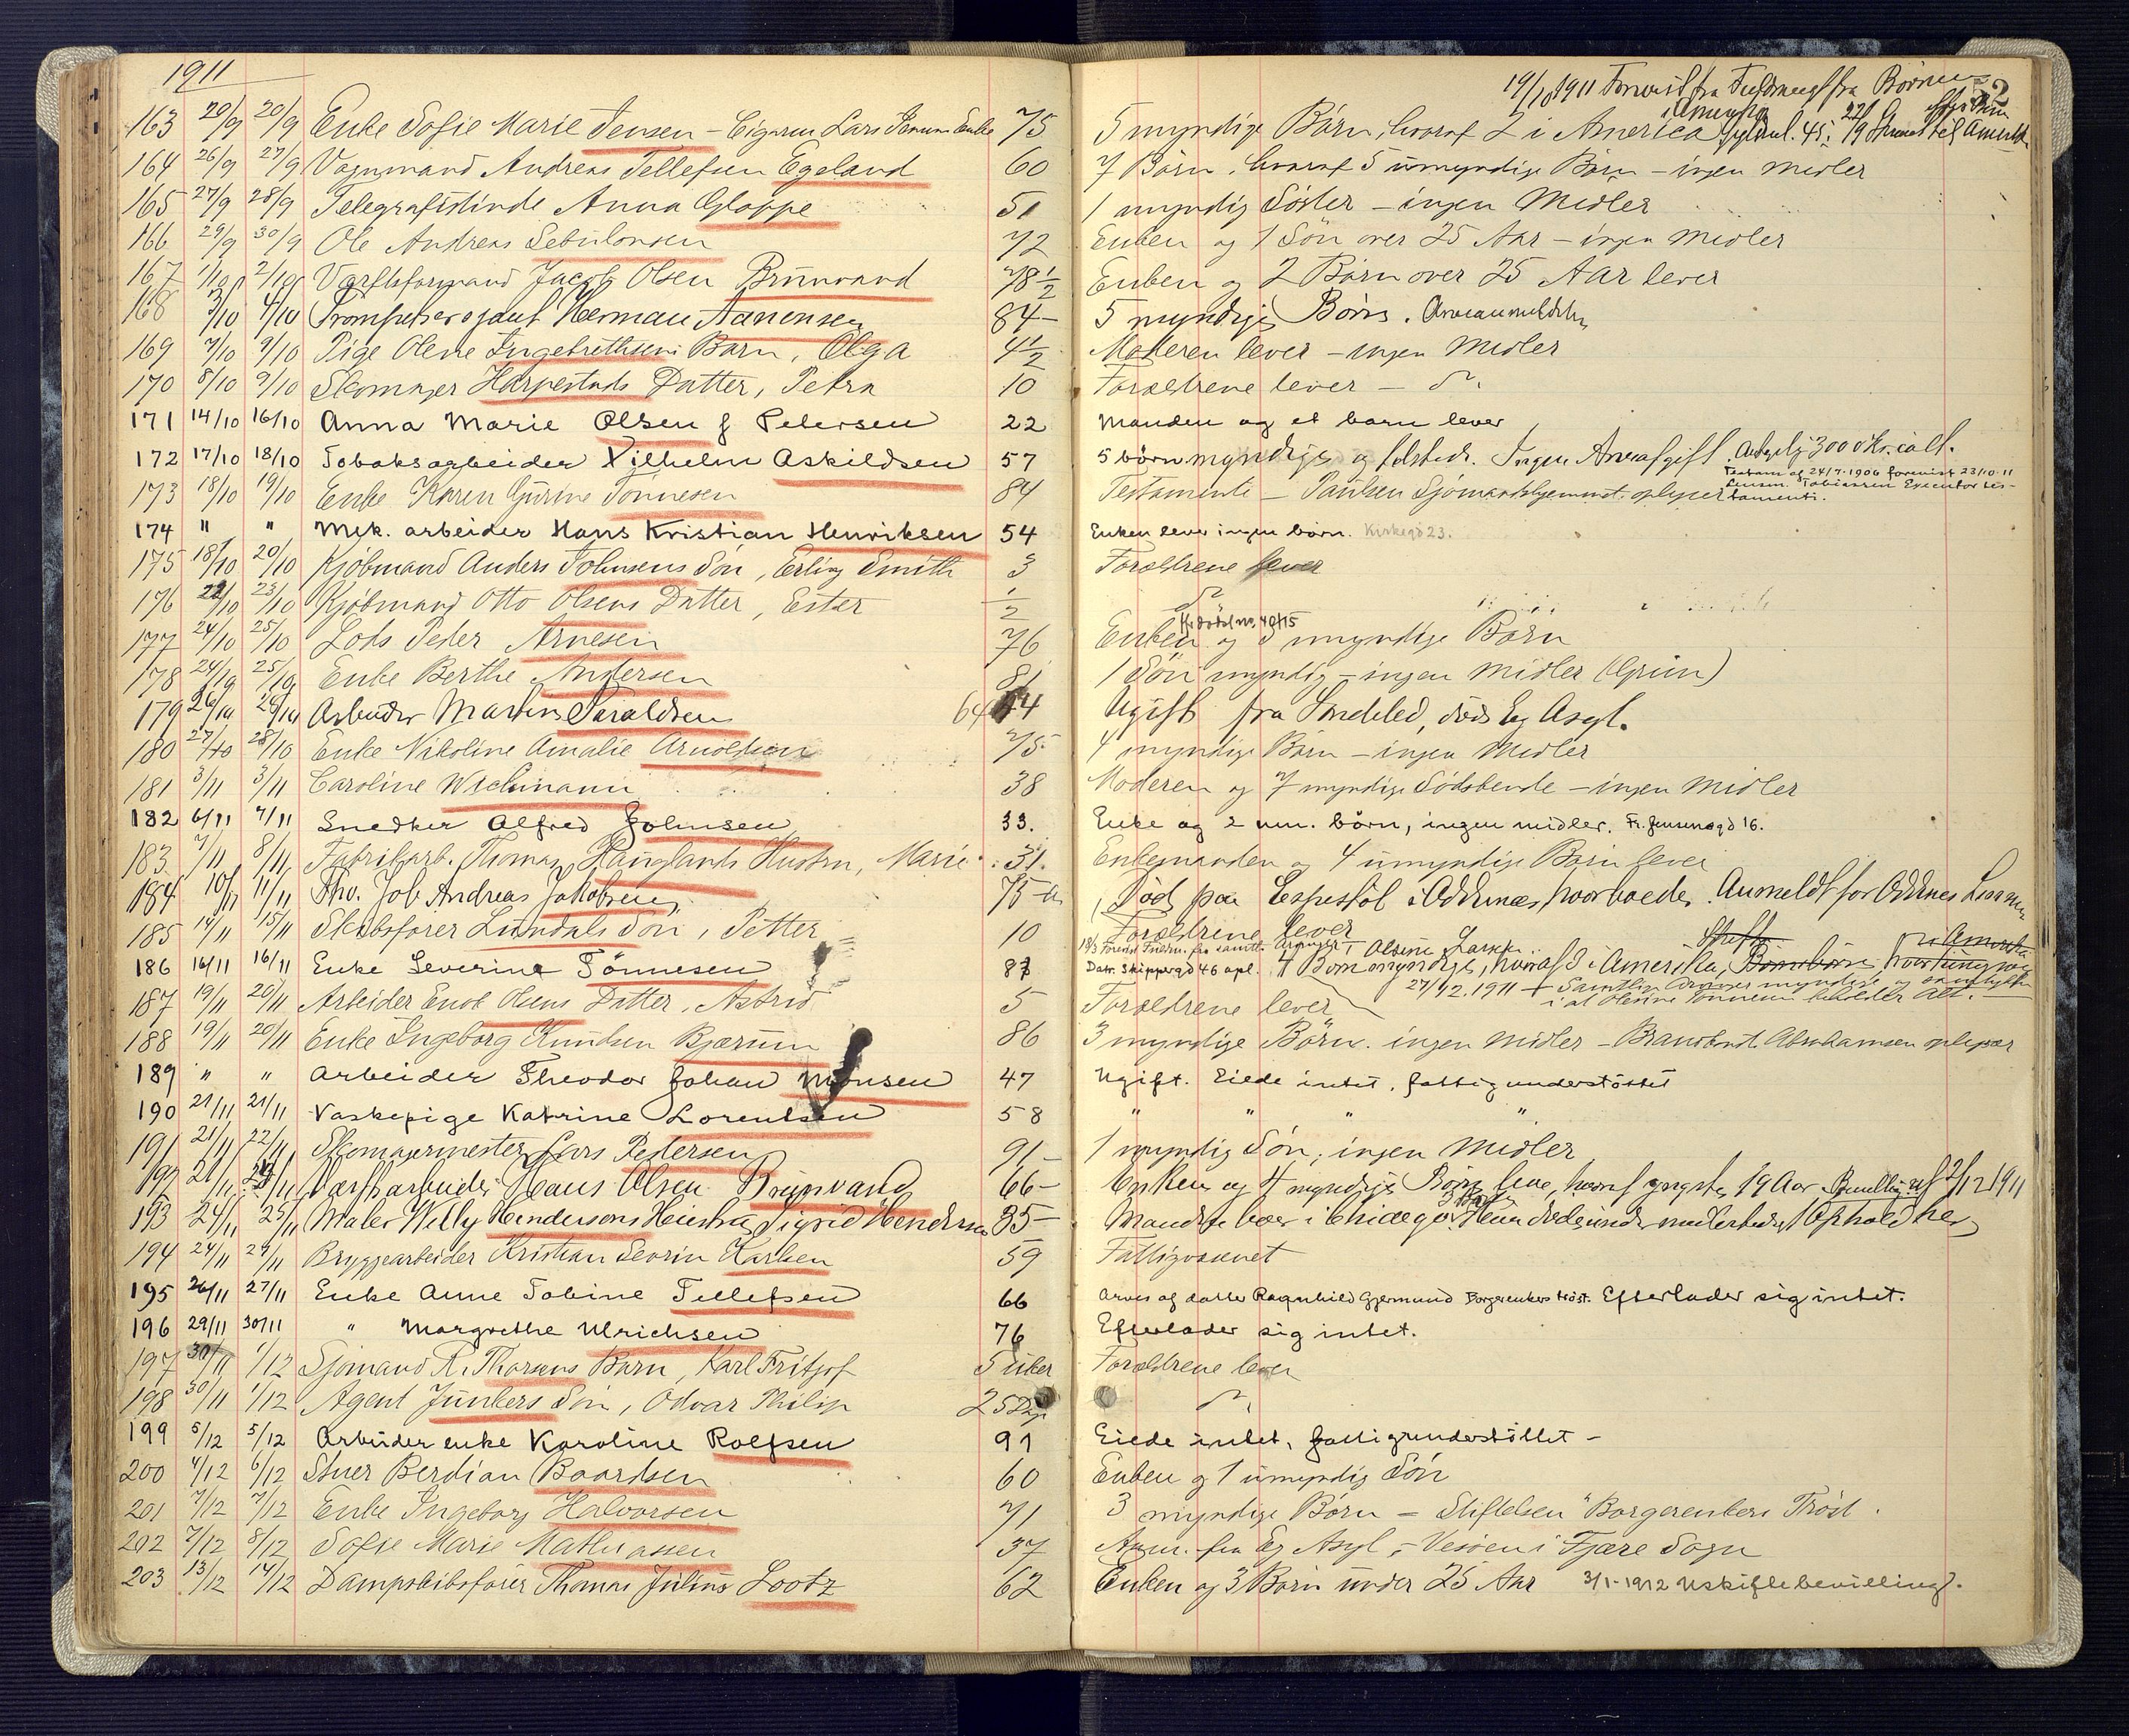 1911
52
19/10 1911 Forevist fra Fuldmagt fra Børnene
163 20/9 20/9 Enke Sofie Marie Jensen - Cigarm. Lars Jensens Enke 75 5 myndige Børn, hvoraf 2 i America
164 26/9 27/9 Vognmand Andreas Tellefsen Egeland 60 7 Børn, hvoraf 5 umyndige Børn - ingen Midler
165 27/9 28/9 Telegrafistinde Anna Gloppe 51 1 myndig Søster - ingen Midler
166 29/9 30/9 Ole Andreas Sebulonsen 72 Enken og 1 Søn over 25 Aar - ingen Midler
167 1/10 2/10 Værftsformand Jacob Olsen Brunvand 78 1/2 Enken og 2 Børn over 25 Aar lever
168 3/10 4/10 Trompetsersjant Herman Aanensen 84 - 5 myndige Børn. Arveanmeldelse
169 7/10 9/10 Pige Olene Ingebrethsens Barn, Olga 4 1/2 Moderen lever - ingen Midler
170 8/10 9/10 Skomager Harpestads Datter, Petra 10 Forældrene lever - do.
171 14/10 16/10 Anna Marie Olsen f Petersen 22 Manden og et barn lever
172 17/10 18/10 Tobaksarbeider Vilhelm Askildsen 57 5 børn myndige og tilstede. Ingen Arveafgift. 3000 kr. ialt.
173 18/10 19/10 Enke Karen Gurine Tønnesen 84 Testamente - Paulsen Sjømandshjemmet oplyser
Testam. af 24/7 1906 forevist 23/10 11
Lensm. Tobiassen Executor tes-
tamenti.
174 " " Mek. arbeider Hans Kristian Henriksen 54 Enken lever ingen børn. Kirkegd 23.
175 18/10 20/10 Kjøbmand Anders Johnsens Søn, Erling Smith 3 Forældrene lever
176 22/10 23/10 Kjøbmand Otto Olsens Datter, Ester 1/2 do
177 24/10 25/10 Lods Peder Arnesen 76 Enken og 3 myndige Børn
178 24/10 25/10 Enke Berthe Andersen 81 1 Søn myndig - ingen Midler (Grim)
179 26/10 26/10 Arbeider Martin Taraldsen 64 Ugift fra Søndeled, døds Eg Asyl.
180 27/10 28/10 Enke Nikoline Amalie Arnoldsen 75 4 myndige Børn - ingen Midler
181 3/11 3/11 Caroline Wichmann 38 Moderen og 7 myndige Sødskende - ingen Midler
182 6/11 7/11 Snedker Alfred Johnsen 33. Enke og 2 um. børn, ingen midler. Fr. Jensensgd 16.
183 7/11 8/11 Fabrikarb. Thomas Hauglands Hustru, Marie 31. Enkemanden og 4 umyndige Børn lever
184 10/11 11/11 Fhv. Job Andreas Jakobsen 75 Død paa Espestøl i Oddernes, hvor boede. Anmeldt for Oddnes Lensm
185 14/11 15/11 Skibsfører Lundals Søn, Petter 10 Forældrene lever
186 16/11 16/11 Enke Severine Tønnesen 87 Datr. Skippergd 46 opl. 4 Børn myndige, hvoraf 3 i Amerika,
27/12 1911 + Samtlige Arvinger myndige og samtykker
i at Olesine Tønnesen beholder Alt.
187 19/11 20/11 Arbeider Enok Olsens Datter, Astrid 5 Forældrene lever
188 19/11 20/11 Enke Ingeborg Knudsen Bjærum 86 3 myndige Børn. ingen Midler - Brandmd. Abrahamsen oplyser
189 " " Arbeider Theodor Johan Monsen 47 Ugift. Eiede intet, fattigunderstøttet
190 21/11 21/11 Vaskepige Katrine Lorentsen 58 " " " "
191 21/11 22/11 Skomagermester Lars Pedersen 91 - 1 myndig Søn; ingen Midler
192 21/11 23/11 Værftsarbeider Hans Olsen Brunvand 66 - Enken og 4 myndige Børn leve, hvoraf yngste 19 Aar. Bevilling af 2/12 1911
193 24/11 25/11 Maler Willy Hendersons Hustru Sigrid Henderson 35 - Manden boer i Chicago. Hun døde under midlertidigt Ophold her
194 24/11 27/11 Bryggearbeider Kristian Severin Karlsen 59 Fattigvæsenet
195 26/11 27/11 Enke Anne Tobine Tellefsen 66 Arves af datter Ragnhild Gjermund Borgerenkers trøst. Efterlader sig intet.
196 29/11 30/11 " Margrethe Ulrichsen 76 Efterlader sig intet.
197 30/11 1/12 Sjømand R. Thorsens Barn, Karl Fritjof 5 uker Forældrene lever
198 30/11 1/12 Agent Junkers Søn, Odvar Philip 25 Dage do.
199 5/12 5/12 Arbeider enke Karoline Roefsen 91 Eiede intet, fattigunderstøttet -
200 4/12 6/12 Stuer Berdian Baardsen 60 Enken og 1 umyndig Søn
201 7/12 7/12 Enke Ingeborg Halvorsen 71 3 myndige Børn - Stiftelsen "Borgerenkers Trøst.
202 7/12 8/12 Sofie Marie Mathiassen 37 Anm. fra Eg Asyl, - Vesøen i Fjære Sogn
203 13/12 14/12 Dampskibsfører Thomas Julius Lootz 62 Enken og 3 Børn under 25 Aar 3/1-1912 Uskiftebevilling.